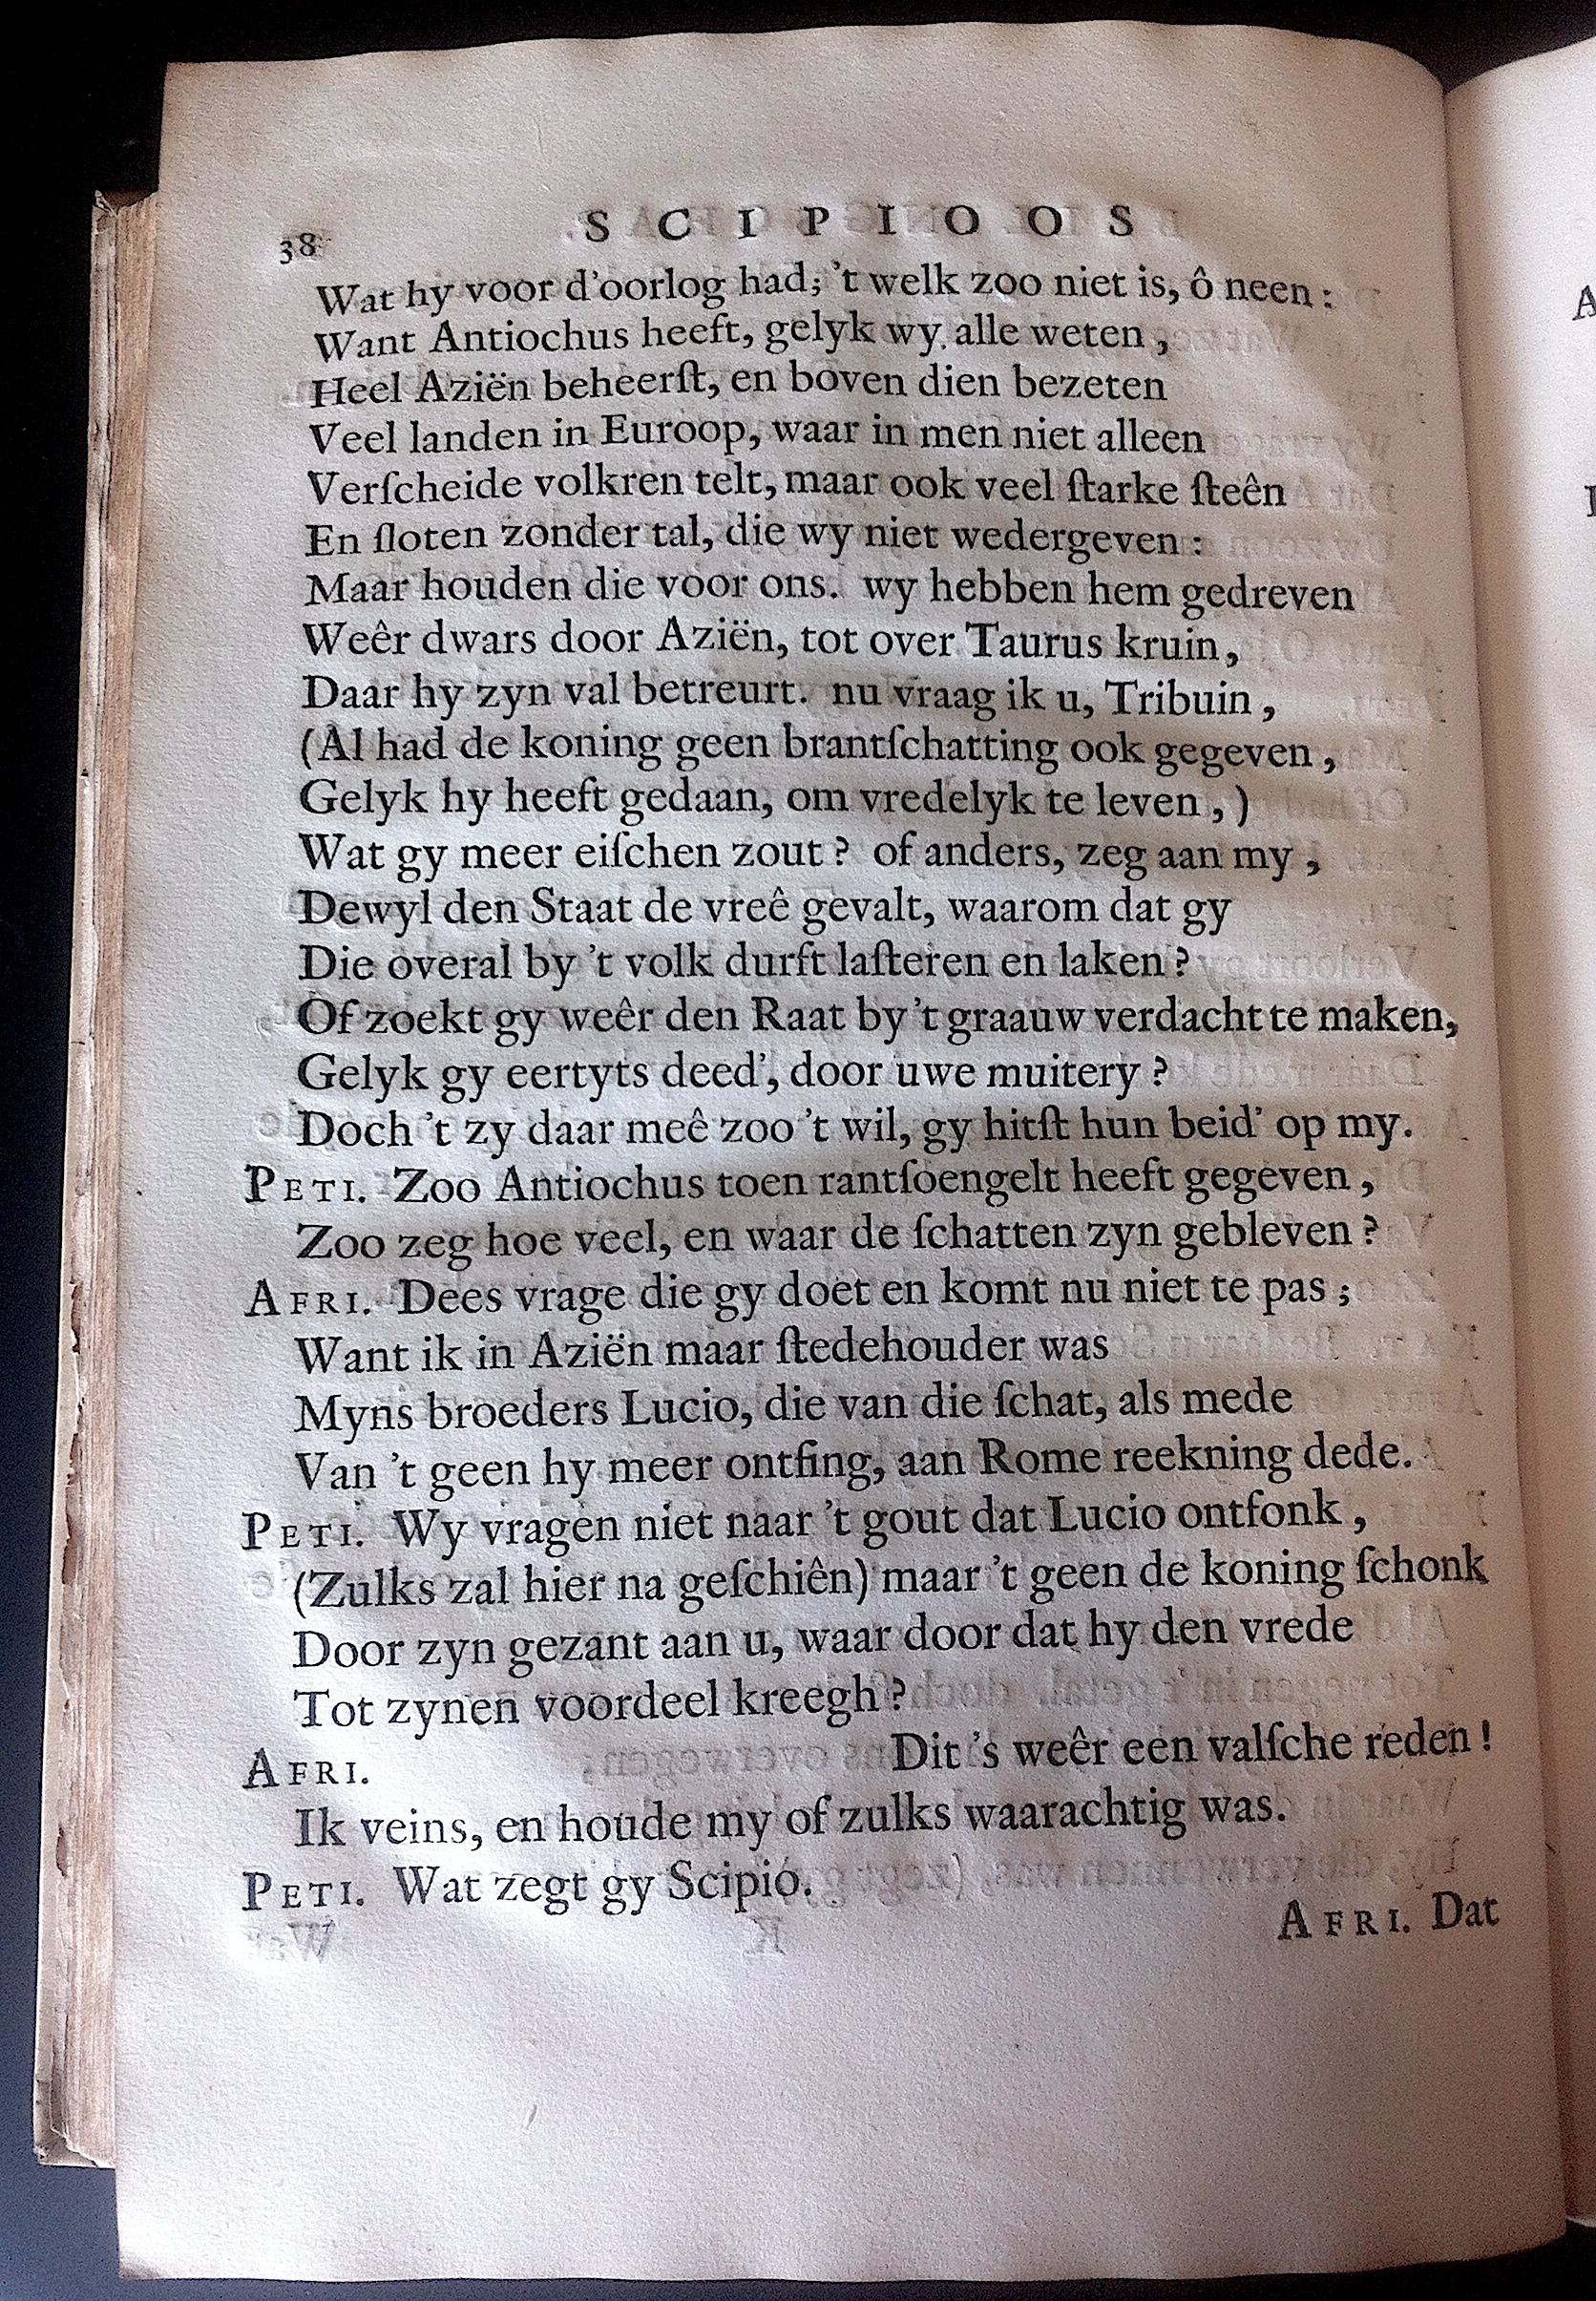 38 SCIPIOOS
Wat hy voor d'oorlog had; 't welk zoo niet is, ô neen:
Want Antiochus heeft, gelyk wy alle weten,
Heel Aziën beheerſt, en boven dien bezeten
Veel landen in Euroop, waar in men niet alleen
Verſcheide volkren telt, maar ook veel ſtarke ſteên
En ſloten zonder tal, die wy niet wedergeven:
Maar houden die voor ons. wy hebben hem gedreven
Weêr dwars door Aziën, tot over Taurus kruin,
Daar hy zyn val betreurt. nu vraag ik u, Tribuin,
(Al had de koning geen brantſchatting ook gegeven,
Gelyk hy heeft gedaan, om vredelyk te leven,)
Wat gy meer eiſchen zout? of anders, zeg aan my,
Dewyl den Staat de vreê gevalt, waarom dat gy
Die overal by 't volk durft laſteren en laken?
Of zoekt gy weêr den Raat by 't graauw verdacht te maken,
Gelyk gy eertyts deed', door uwe muitery?
Doch 't zy daar meê zoo 't wil, gy hitſt hun beid' op my.
PETI. Zoo Antiochus toen rantſoengelt heeft gegeven,
Zoo zeg hoe veel, en waar de ſchatten zyn gebleven?
AFRI. Dees vrage die gy doet en komt nu niet te pas;
Want ik in Aziën maar ſtedehouder was
Myns broeders Lucio, die van die ſchat, als mede
Van 't geen hy meer ontfing, aan Rome reekning dede.
PETI. Wy vragen niet naar 't gout dat Lucio ontfonk,
(Zulks zal hier na geſchiên) maar 't geen de koning ſchonk
Door zyn gezant aan u, waar door dat hy den vrede
Tot zynen voordeel kreegh?
AFRI. Dit 's weêr een valſche reden!
Ik veins, en houde my of zulks waarachtig was.
PETI. Wat zegt gy Scipio.
AFRI. Dat